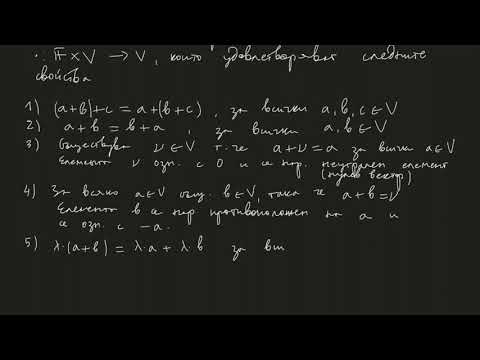 · : F × V → V, които удовлетворяват следните
свойства
1) (a+b)+c = a+(b+c), за всички a, b, c ∈ V
2) a+b = b+a, за всички a, b ∈ V
3) Съществува ν ∈ V т.че a+ν = a за всички a ∈ V
Елементът ν озн. с 0 и се нар. неутрален елемент
(нулев вектор)
4) За всяко a ∈ V същ. b ∈ V, така че a+b = ν
Елементът b се нар. противоположен на a и
се озн. с -a.
5) λ·(a+b) = λ·a + λ·b за вси